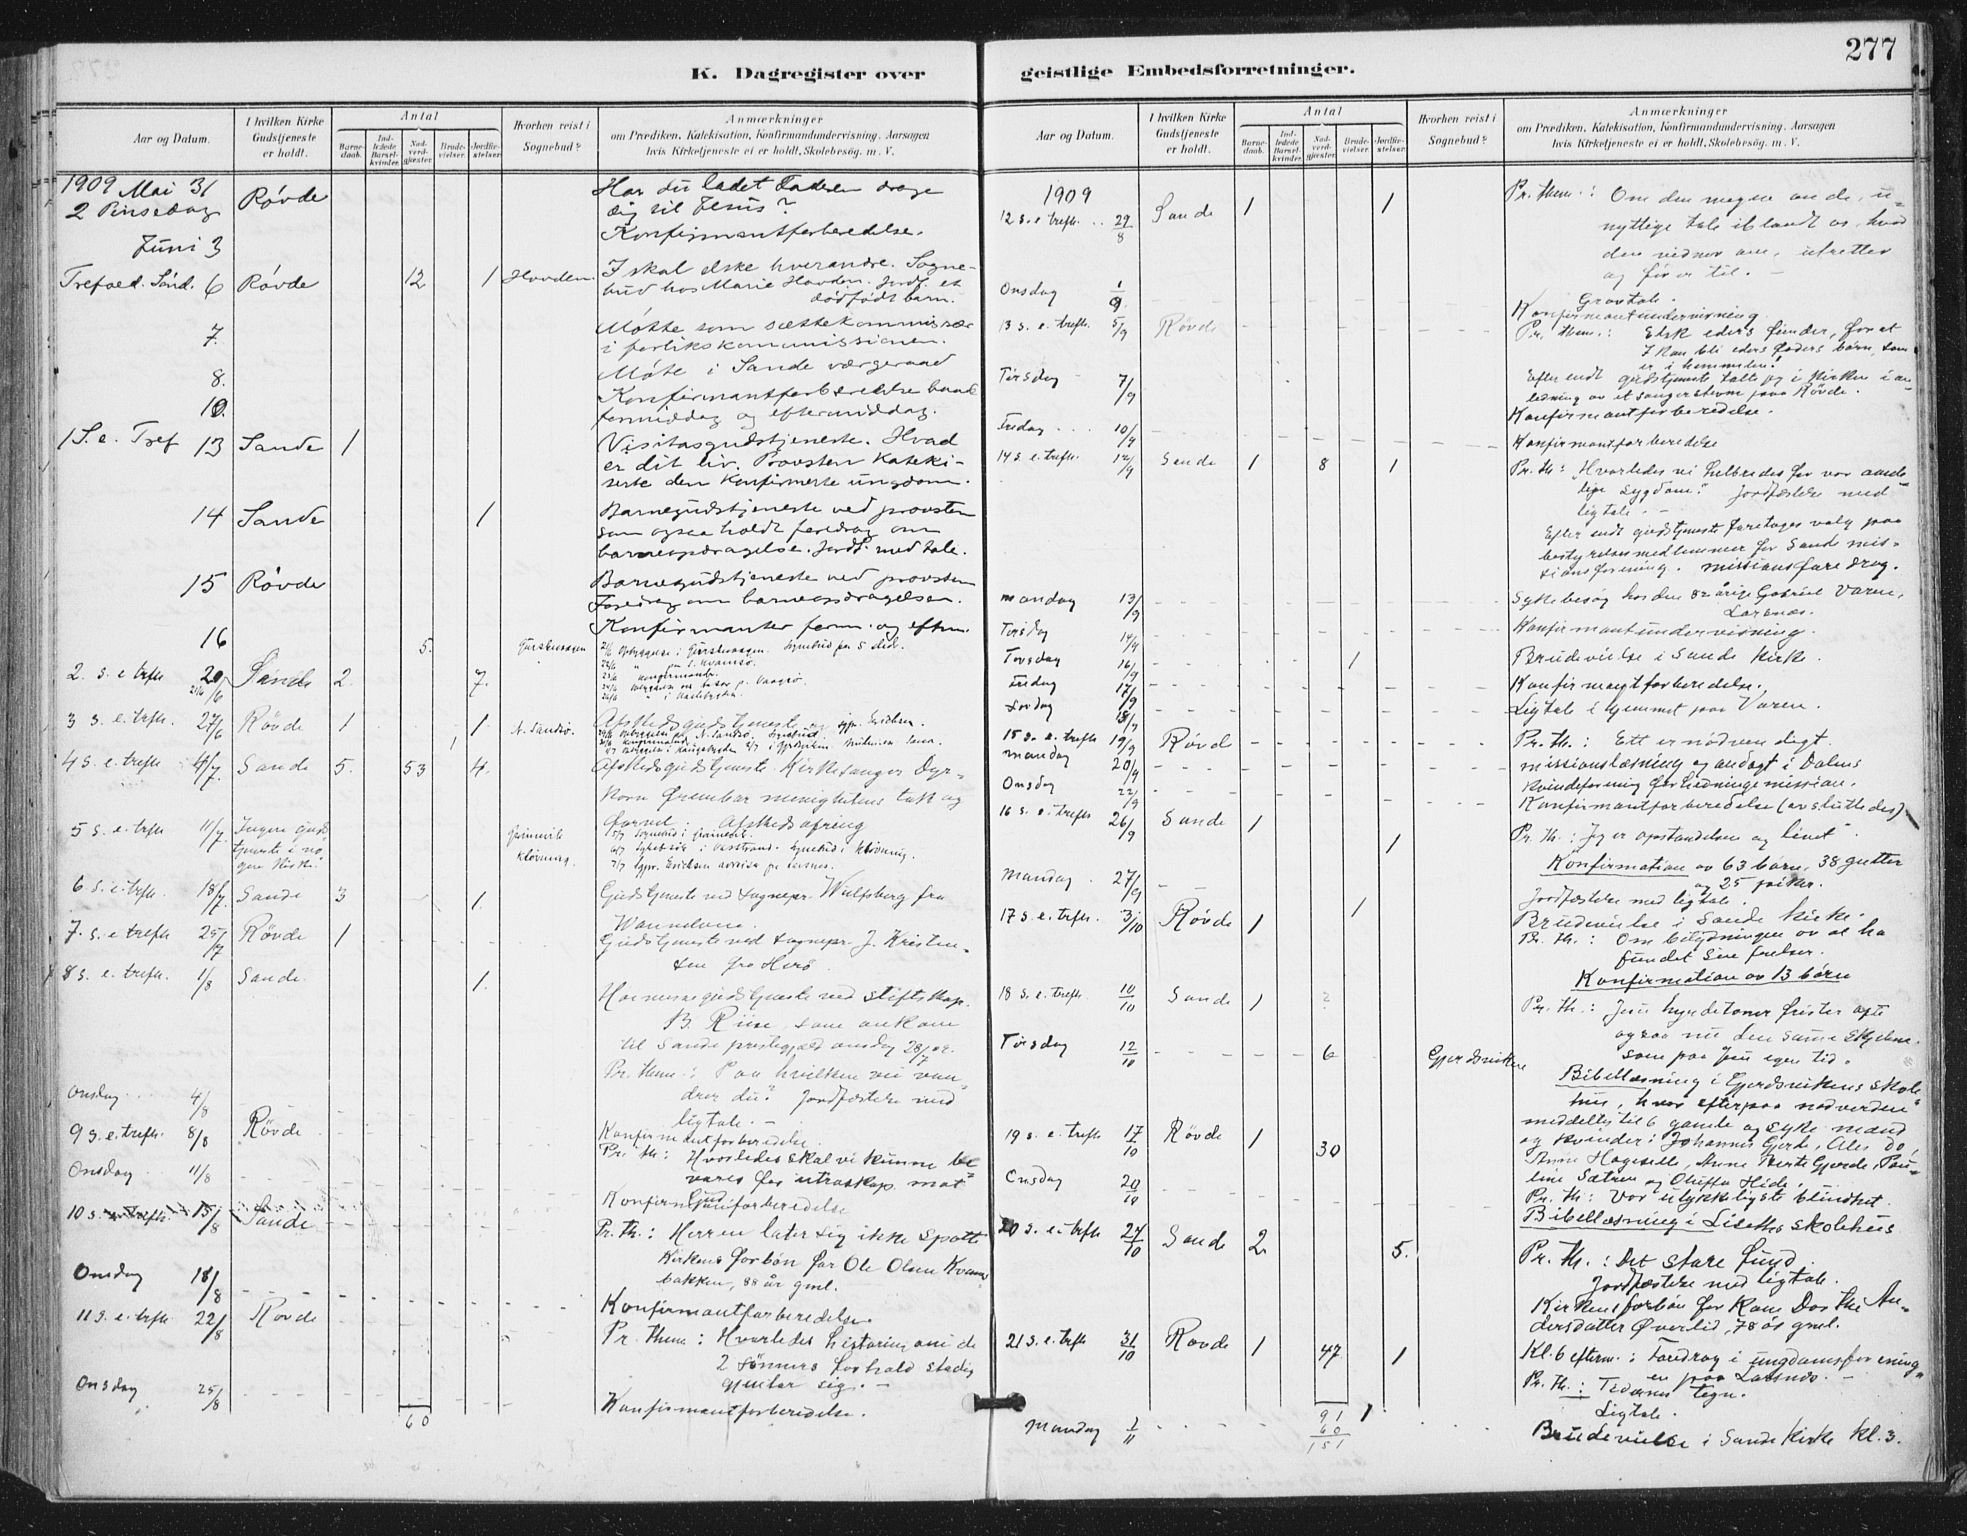 277
K. Dagregister over geistlige Embedsforretninger.
Aar og Datum.
I hvilken Kirke Gudstjeneste er holdt.
Antal
Barnedaab.
Indledede Barselkvinder.
Nadverdgjæster.
Brudevielser.
Jordfæstelser.
Hvorhen reist i Sognebud?
Anmærkninger
om Prædiken, Katekisation, Konfirmandundervisning. Aarsagen
hvis Kirketjeneste ei er holdt, Skolebesøg. m. V.
1909 Mai 31 Røvde Har du ladet Faderen drage
2 Pinsedag dig til Jesus?
Juni 3 Konfirmantforberedelse.
Trefold. Sønd. 6 Røvde 12 1 Hovden I skal elske hverandre. Sogne-
bud hos Marie Hovden. Jordf. et
dødfødt barn.
7. Møtte som sættekommissær
i forlikskommissionen.
8. Møte i Sande værgeraad
10. Konfirmantforberedelse baade
formiddag og eftermiddag.
1 S. e. Tref 13 Sande 1 Visitasgudstjeneste. Hvad
er dit liv. Provsten kateki-
serte den konfirmerte ungdom.
14 Sande 1 Barnegudstjeneste ved provsten
som ogsaa holdt foredrag om
barneopdragelse. Jordf. med tale.
15 Røvde Barnegudstjeneste ved provsten
Foredrag om barneopdragelsen.
16 Konfirmanter form. og efterm.
5. Gurskevaagen
2. s. e trefh 20/6 Sande 2. 7.
3 s. e. trefh. 27/6 Røvde 1 1. N. Sandsø. Afskedsgudstjeneste
4 s. e. trefh 4/7. Sande 5. 53 4. Afskedsgudstjeneste. Kirkesanger Dyr-
korn frembar menighetens tak og
farvel. Afskedsofring
5 s. e. trefh 11/7 Ingen Guds
tjeneste i no-
gen Kirke.
Kløvning.
6 s. e. trefh. 18/7. Sande 3 1. Gudstjeneste ved sognepr. Wulfsberg fra
Wannelven.
7. s. e trefh 25/7 Røvde 1 Gudstjeneste ved sognepr. J. Kristen-
sen fra Herø
8 s. e. trefh. 1/8 Sande. 1. Høimessegudstjeneste ved stiftskap.
B. Riise, som ankom
til Sande prestegjæld onsdag 28/7 09.
Pr. Thema: Paa hvilken vei van-
drer du? Jordfæstelse med
ligtale. –
Onsdag 4/8 Konfirmantforberedelse.
9 s. e. trefh. 8/8 Røvde. Pr. th.: Hvorledes skal vi kunne be-
vares for utroskap mot
Gud
Onsdag 11/8 Konfirmantforberedelse
10 s. e. trefh. 15/8 Sande Pr. Th.: Herren later sig ikke spotte
Kirkens forbøn for Ole Olsen Kvams-
bakken, 88 år gml.
Onsdag 18/8 Konfirmantforberedelse.
11 s. e. trefh. 22/8 Røvde Pr. Thema: Hvorledes historien om de
2 sønners forhold stadig
gjentar sig. –
Onsdag 25/8 Konfirmantforberedelse.
60
Aar og Datum.
I hvilken Kirke Gudstjeneste er holdt.
Antal
Barnedaab.
Indledede Barselkvinder.
Nadverdgjæster.
Brudevielser.
Jordfæstelser.
Hvorhen reist i Sognebud?
Anmærkninger
om Prædiken, Katekisation, Konfirmandundervisning. Aarsagen
hvis Kirketjeneste ei er holdt, Skolebesøg. m. V.
1909
12 s. e. trefh. 29/8 Sande 1 1 Pr. them.: Om den megen onde, u-
nyttige tale iblandt os, hvad
den vidner om, utretter
og fører til. –
Gravtale.
Onsdag 1/9. Konfirmantundervisning.
13 s. e. trefh. 5/9 Røvde Pr. them.: Elsk eders fiender, for at
I kan bli eders faders børn, som
er i himmelen.
Efter endt gudstjeneste talte jeg i kirken i an-
ledning av et sangerstevne paa Røvde.
Tirsdag 7/9 Konfirmantforberedelse.
Fredag 10/9 Konfirmantforberedelse
14 s. e. trefh. 12/9 Sande 1 8 1 Pr. th: "Hvorledes vi helbredes for vor aande-
lige sygdom." Jordfæstelse med
ligtale. –
Efter endt gudstjeneste foretages valg paa
bestyrelsesmedlemmer for Sande mis-
sionsforening. Missionsforedrag.
Mandag 13/9 Sykebesøg hos den 82 årige Gabriel Varen,
Larsnæs.
Tirsdag 14/9 Konfirmantundervisning.
Torsdag 16/9 1 Brudevielse i Sande kirke.
Fredag 17/9 Konfirmantforberedelse.
Lørdag 18/9 Ligtale i hjemmet paa Varen.
15 s. e. trefh 19/9 Røvde Pr. th.: Ett er nødvendigt.
Mandag 20/9 Missionslæsning og andagt i Dalens
kvindeforening for hedningemission.
Onsdag 22/9 Konfirmantforberedelse (avsluttedes)
16 s. e. trefh 26/9 Sande 1 1 Pr. th.: "Jeg er opstandelsen og livet".
Konfirmation av 63 børn, 38 gutter
og 25 piker.
Jordfæstelse med ligtale.
Mandag 27/9 1 Brudevielse i Sande kirke.
17 s. e. trefh. 3/10 Røvde 1 Pr. th.: Om betydningen av at ha
fundet sin frelser.
Konfirmation av 13 børn
18 s. e. trefh. 10/10 Sande 1 2 Pr. th.: Jesu hyrdetoner frister ofte
ogsaa nu den samme skjæbne
som paa Jesu egen tid.
Tirsdag 12/10 6 Gjerdsviken Bibellæsning i Gjerdsvikens skole-
hus, hvor efterpaa nadverden
meddeltes til 6 gamle og syke mænd
og kvinder: Johannes Gjerde, Ales do,
Anne Hageselle, Anne Berte Gjerde, Pau-
line Sætren og Oluffa Hide.
19 s. e. trefh. 17/10 Røvde 1 30 Pr. th: Vor ulykkeligste blindhet
Onsdag 20/10 Bibellæsning i Lisethe skolehus
20 s. e. trefh 24/10 Sande 2. 5. Pr. th.: Det store fund.
Jordfæstelse med ligtale.
Kirkens forbøn for Kone Dorthe An-
dersdatter Øverlid, 78 år gml.
Kl. 6 efterm.: Foredrag i ungdomsforening-
en paa Larsnes. –
21 s. e. trefh 31/10 Røvde 1 47 1 Pr. th.: Tidernes tegn.
Ligtale.
91
60
151
Mandag 1/11 1 Brudevielse i Sande kirke kl. 3.